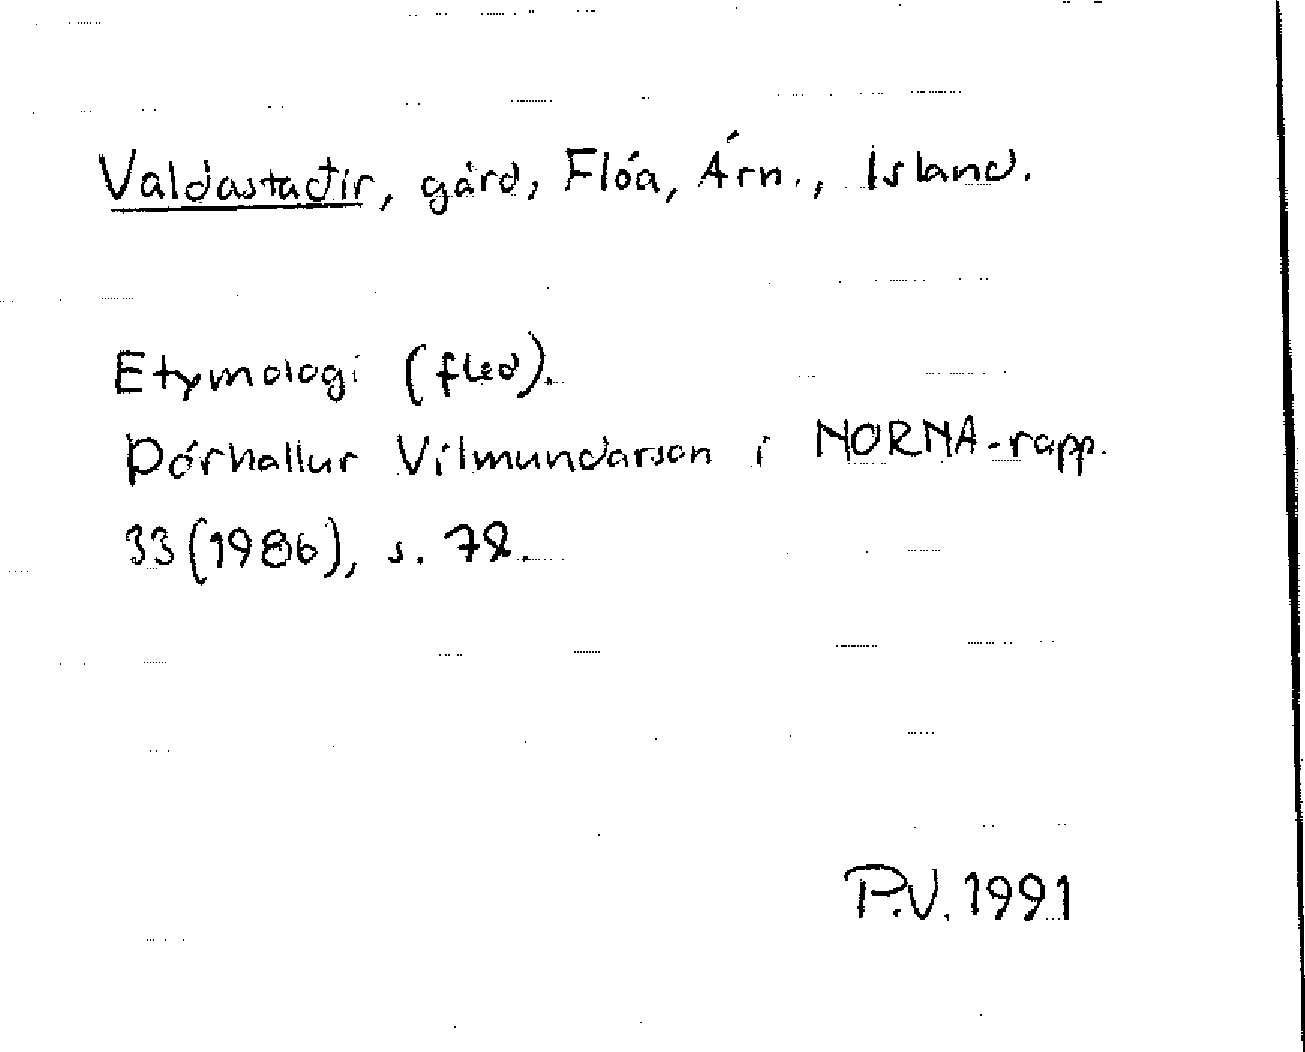 Valdastaðir, gård, Flóa, Árn., Island.
Etymologi (fled).
Þórhallur Vilmundarson i NORNA-rapp.
33 (1986), s. 78.
P.V. 1991